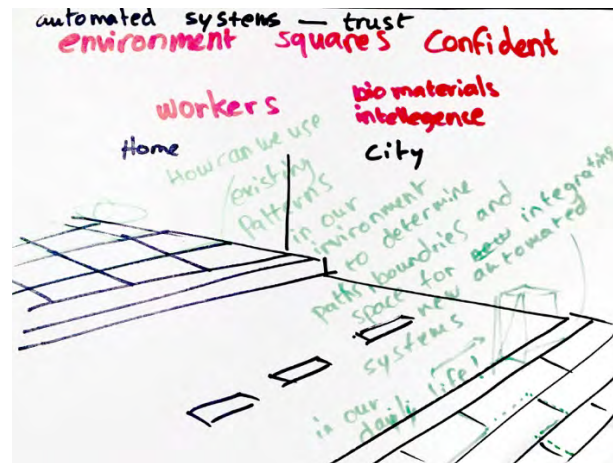 automated systems — trust
environment squares Confident
workers
bio materials
intellegence
Home
City
How can we use
existing
Patterns
in our
invironment
to determine
paths, boundries and
space for new integrating
new automated
systems
in our
dayily life!